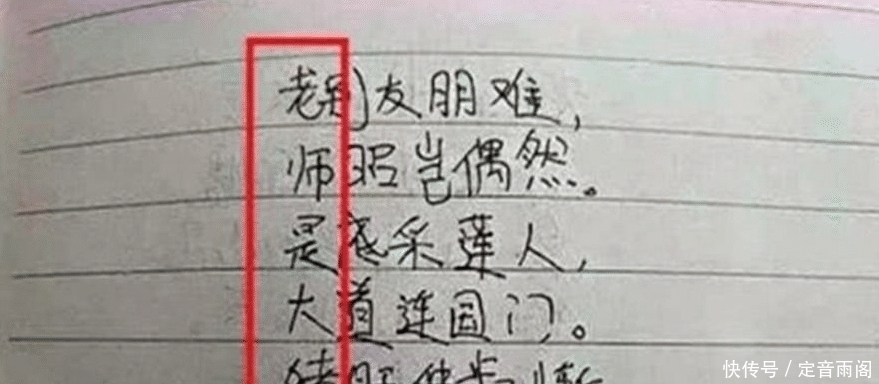 老别友朋难，
师昭岂偶然。
是底采莲人，
大道连国门。
快传号／定音雨阁